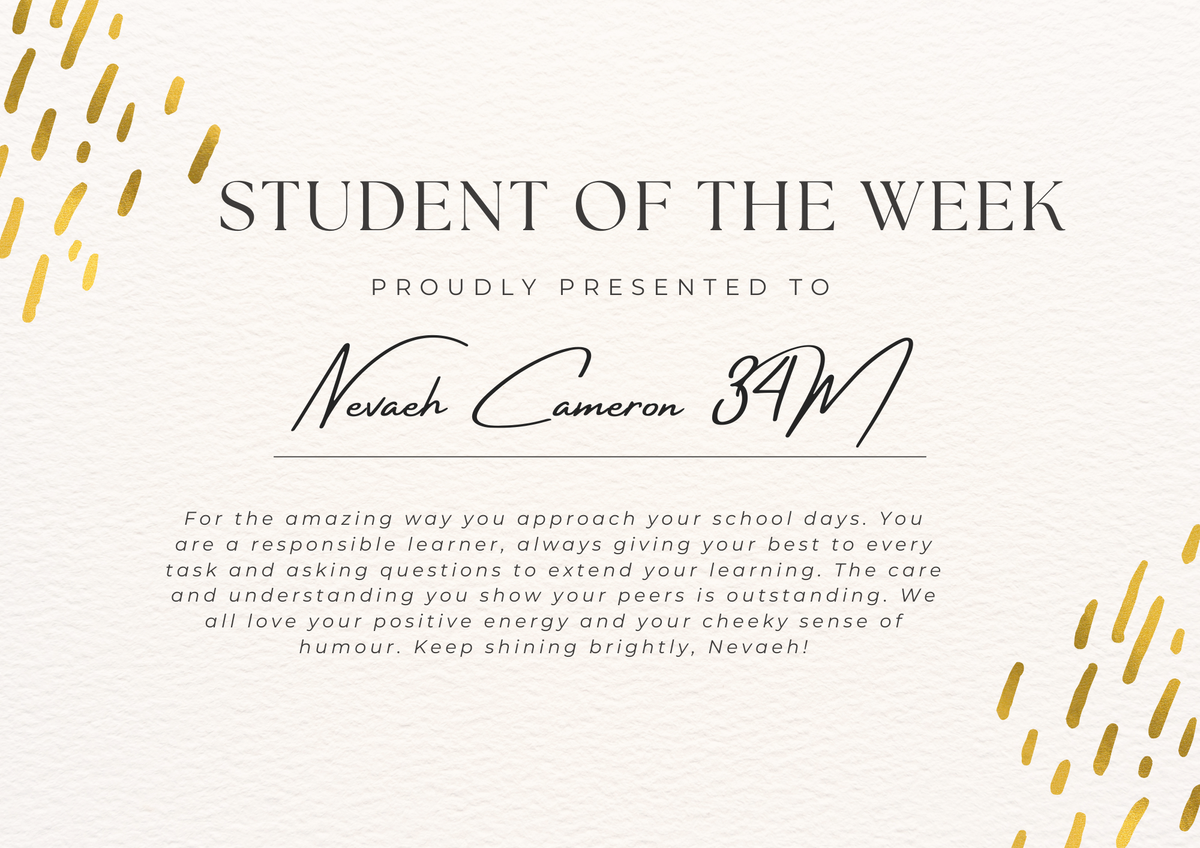 STUDENT OF THE WEEK
PROUDLY PRESENTED TO
Nevaeh Cameron 34M
For the amazing way you approach your school days. You
are a responsible learner, always giving your best to every
task and asking questions to extend your learning. The care
and understanding you show your peers is outstanding. We
all love your positive energy and your cheeky sense of
humour. Keep shining brightly, Nevaeh!